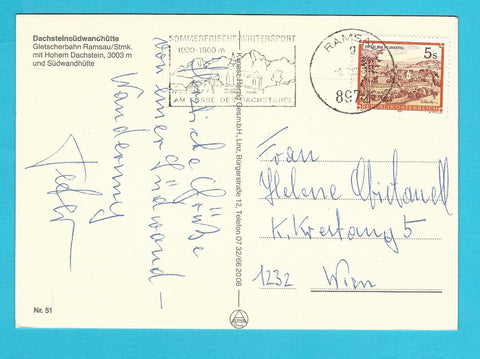 Dachsteinsüdwandhütte
Gletscherbahn Ramsau/Stmk.
mit Hohem Dachstein, 3003 m
und Südwandhütte
SOMMERFRISCHE-WINTERSPORT
1000-1800 m
AM FUSSE DES DACHSTEINS
RAMSAU
897
5s
REPUBLIK ÖSTERREICH
Herzliche Grüße
von einer Südwand-
Wanderung
Ges.m.b.H, Linz, Bürgerstraße 12, Telefon 07 32/66 20 08
Frau
Helene
K. 5
1232 Wien
Nr. 51